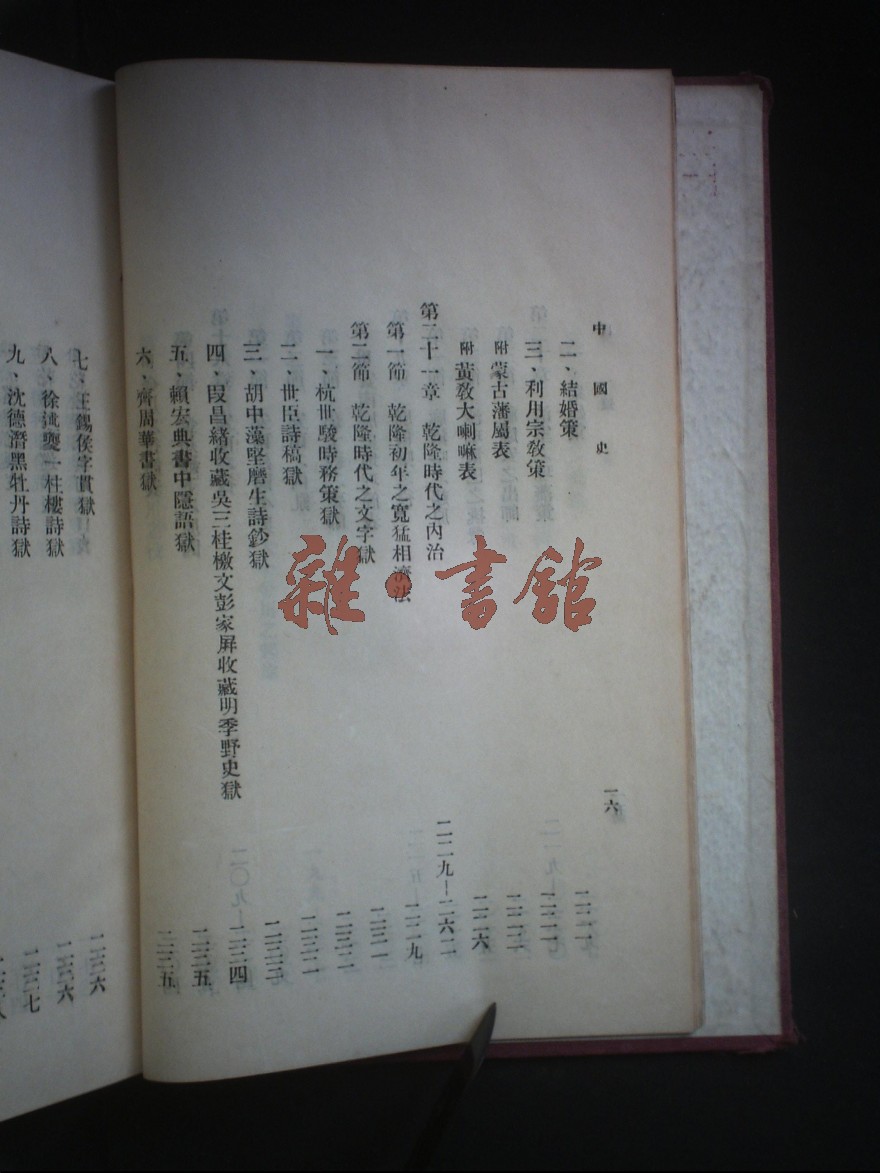 中國史 一六
二、結婚策 二二一
三、利用宗教策 二二一
附 蒙古藩屬表 二二二
附 黃教大喇嘛表 二二六
第二十一章 乾隆時代之內治 二二九—二六二
第一節 乾隆初年之寬猛相濟法 二二九
第二節 乾隆時代之文字獄 二三一
一、杭世駿時務策獄 二三二
二、世臣詩稿獄 二三二
三、胡中藻堅磨生詩鈔獄 二三三
四、段昌緒收藏吳三桂檄文彭家屏收藏明季野史獄 二三四
五、賴宏典書中隱語獄 二三五
六、齊周華書獄 二三五
七、王錫侯字貫獄 二三六
八、徐述夔一柱樓詩獄 二三六
九、沈德潛黑牡丹詩獄 二三七
雜·書館